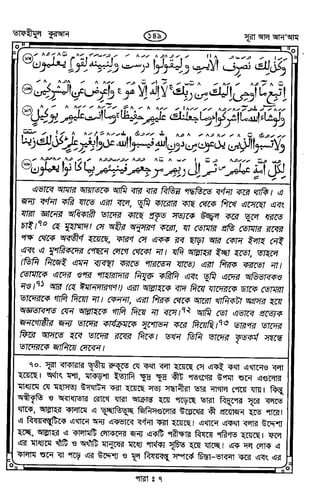 তাফহীমুল কুরআন
১৪৯
সূরা আল আন'আম
وَكَذٰلِكَ نُصَرِّفُ الْاٰيٰتِ وَلِيَقُوْلُوْا دَرَسْتَ وَلِنُبَيِّنَهٗ لِقَوْمٍ يَّعْلَمُوْنَ
اِتَّبِعْ مَآ اُوْحِيَ اِلَيْكَ مِنْ رَّبِّكَ ۚ لَآ اِلٰهَ اِلَّا هُوَ ۚ وَاَعْرِضْ عَنِ الْمُشْرِكِيْنَ
وَلَوْ شَآءَ اللّٰهُ مَآ اَشْرَكُوْا ۗ وَمَا جَعَلْنٰكَ عَلَيْهِمْ حَفِيْظًا ۚ وَمَآ اَنْتَ عَلَيْهِمْ بِوَكِيْلٍ
وَلَا تَسُبُّوا الَّذِيْنَ يَدْعُوْنَ مِنْ دُوْنِ اللّٰهِ فَيَسُبُّوا اللّٰهَ عَدْوًۢا بِغَيْرِ عِلْمٍ ۗ كَذٰلِكَ زَيَّنَّا
لِكُلِّ اُمَّةٍ عَمَلَهُمْ ۖ ثُمَّ اِلٰى رَبِّهِمْ مَّرْجِعُهُمْ فَيُنَبِّئُهُمْ بِمَا كَانُوْا يَعْمَلُوْنَ
এভাবে আমার আয়াতকে আমি বার বার বিভিন্ন পদ্ধতিতে বর্ণনা করে থাকি। এ
জন্য বর্ণনা করি যাতে এরা বলে, তুমি কারোর কাছ থেকে শিখে এসেছো এবং
যারা জ্ঞানের অধিকারী তাদের কাছে প্রকৃত সত্যকে উজ্জ্বল করে তুলে ধরতে
চাই।৭০ হে মুহাম্মাদ! সে অহীর অনুসরণ করো, যা তোমার প্রতি তোমার রবের
পক্ষ থেকে অবতীর্ণ হয়েছে, কারণ সে একক রব ছাড়া আর কোন ইলাহ নেই
এবং এ মুশরিকদের পেছনে লেগে থেকো না। যদি আল্লাহর ইচ্ছা হতো, তাহলে
(তিনি নিজেই এমন ব্যবস্থা করতে পারতেন যাতে) এরা শিরক করতো না।
তোমাকে এদের ওপর পাহারাদার নিযুক্ত করিনি এবং তুমি এদের অভিভাবকও
নও।৭১ আর (হে ঈমানদারগণ!) এরা আল্লাহকে বাদ দিয়ে যাদেরকে ডাকে তোমরা
তাদেরকে গালি দিয়ো না। কেননা, এরা শিরক থেকে আরো খানিকটা অগ্রসর হয়ে
অজ্ঞতাবশত যেন আল্লাহকে গালি দিয়ে না বসে।৭২ আমি তো এভাবে প্রত্যেক
জনগোষ্ঠীর জন্য তাদের কার্যক্রমকে সুশোভন করে দিয়েছি।৭৩ তারপর তাদের
ফিরে আসতে হবে তাদের রবের দিকে। তখন তিনি তাদের কৃতকর্ম সম্বন্ধে
তাদেরকে জানিয়ে দেবেন।
৭০. সূরা বাকারার তৃতীয় রুকূতে যে কথা বলা হয়েছে সে একই কথা এখানেও বলা
হয়েছে। অর্থাৎ মশা, মাকড়শা ইত্যাদি ক্ষুদ্র ক্ষুদ্র কীট পতংগের উপমা শুনে এগুলোর
মাধ্যমে যে মহাসত্য উদঘাটন করা হয়েছে সত্য সন্ধানীরা তার নাগাল পেয়ে যায়। কিন্তু
অস্বীকৃতি ও অবাধ্যতার রোগে যারা আক্রান্ত হয়ে পড়েছে তারা বিদ্রূপের সুরে বলতে
থাকে, আল্লাহর কালামে এ তুচ্ছাতিতুচ্ছ জিনিসগুলোর উল্লেখের কী প্রয়োজন হতে পারে।
এ বিষয়বস্তুটিকে এখানে অন্য একভাবে বর্ণনা করা হয়েছে। এখানে একথা বলার উদ্দেশ্য
হচ্ছে, আল্লাহর এ কালামটি লোকদের জন্য একটি পরীক্ষার বিষয়ে পরিণত হয়েছে। ফলে
এর মাধ্যমে খাঁটি ও অখাঁটি মানুষের মধ্যে পার্থক্য সূচিত হয়ে যাচ্ছে। এক দল লোক এ
কালাম শুনে বা পড়ে এর উদ্দেশ্য ও মূল বিষয়বস্তু সম্পর্কে চিন্তা-ভাবনা করে এবং এর
পারা : ৭